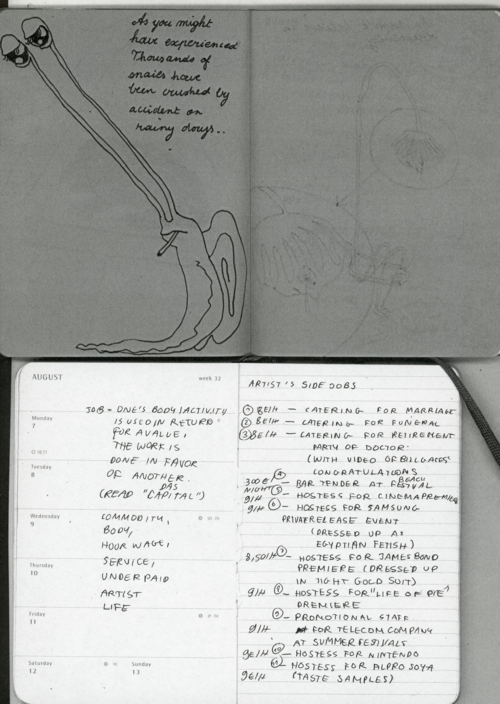 As you might
have experienced
Thousands of
snails have
been crushed by
accident on
rainy days..
AUGUST
week 32
Monday
7
Tuesday
8
Wednesday
9
Thursday
10
Friday
11
Saturday
12
Sunday
13
JOB = ONE'S BODY/ACTIVITY
IS USED IN RETURN
FOR A VALUE,
THE WORK IS
DONE IN FAVOR
OF ANOTHER.
(READ "DAS CAPITAL")
COMMODITY,
BODY,
HOUR WAGE,
SERVICE,
UNDERPAID
ARTIST
LIFE
ARTIST'S SIDE JOBS
① 8E/H — CATERING FOR MARRIAGE
② 8E/H — CATERING FOR FUNERAL
③ 8E/H — CATERING FOR RETIREMENT
PARTY OF DOCTOR
(WITH VIDEO OF BILL GATES'
CONGRATULATIONS
300E/NIGHT ④ — BAR TENDER AT BEACH FESTIVAL
9/H ⑤ — HOSTESS FOR CINEMA PREMIERE
9/H ⑥ — HOSTESS FOR SAMSUNG
PRIVATE RELEASE EVENT
(DRESSED UP AS
EGYPTIAN FETISH)
8,50/H ⑦ — HOSTESS FOR JAMES BOND
PREMIERE (DRESSED UP
IN TIGHT GOLD SUIT)
9/H ⑧ — HOSTESS FOR "LIFE OF PIE"
PREMIERE
⑨ — PROMOTIONAL STAFF
9/H FOR TELECOM COMPANY
AT SUMMER FESTIVALS
9E/H ⑩ — HOSTESS FOR NINTENDO
⑪ — HOSTESS FOR ALPRO SOYA
9E/H (TASTE SAMPLES)